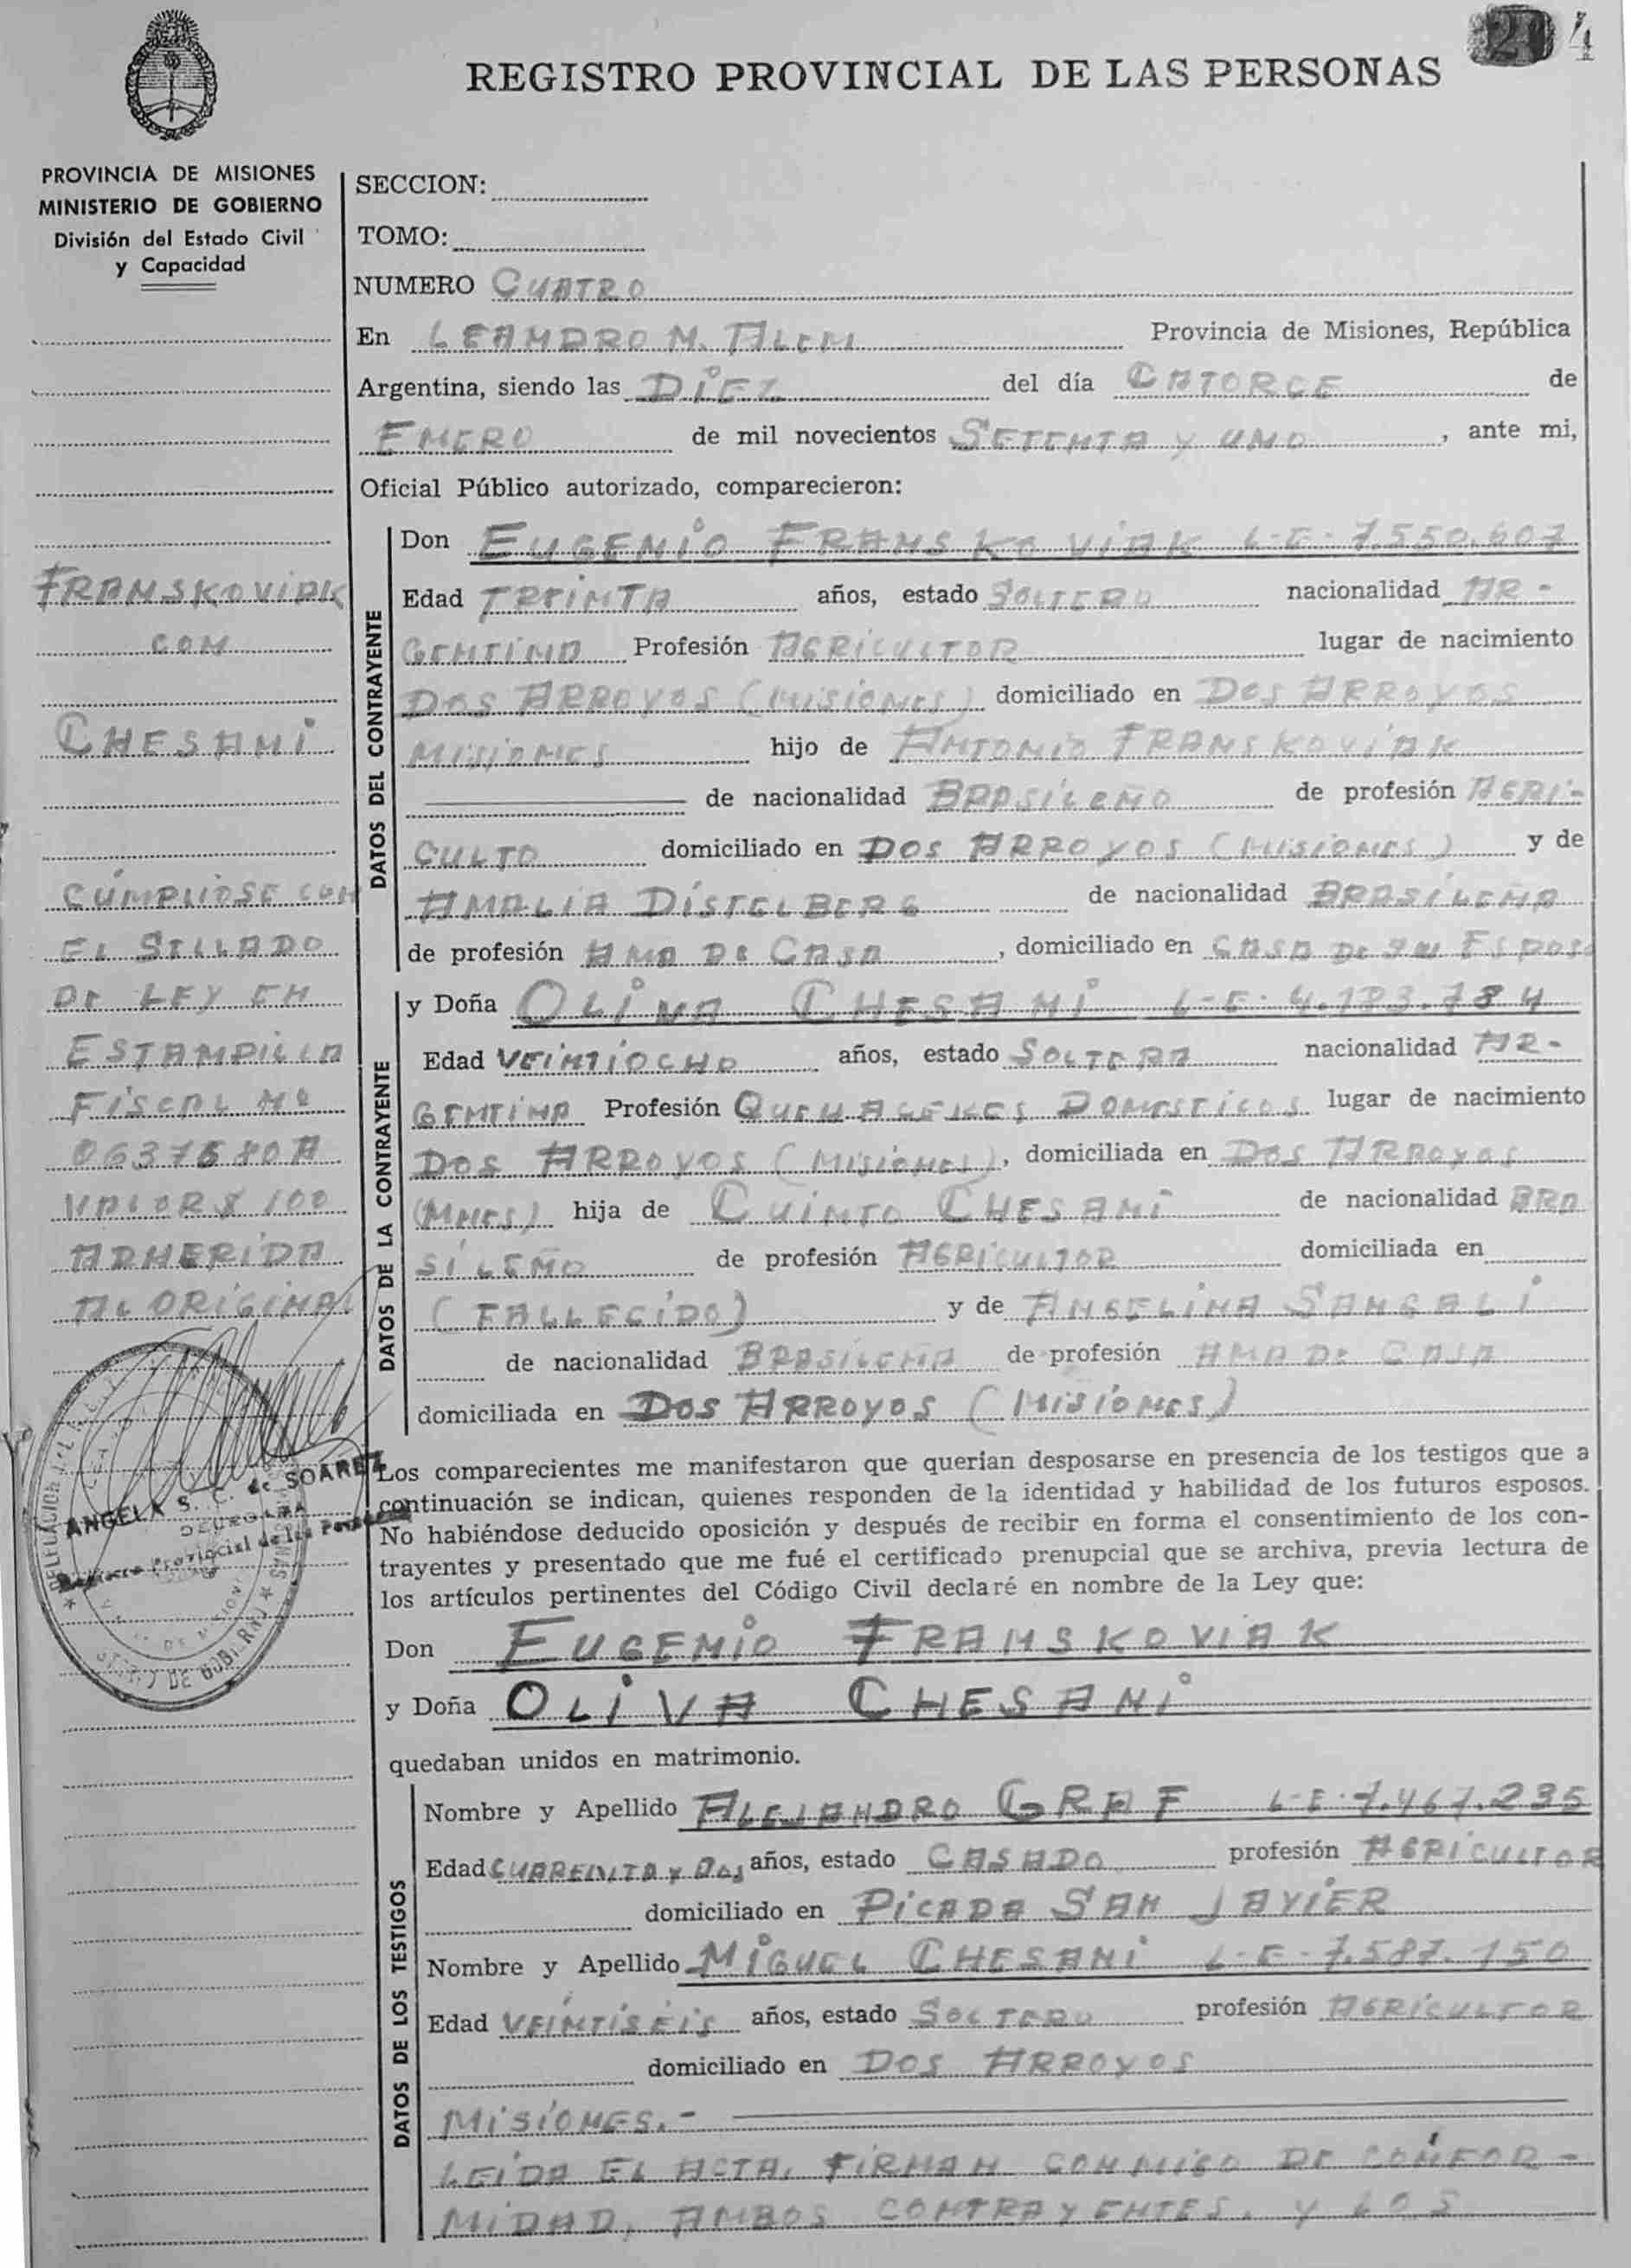 REGISTRO PROVINCIAL DE LAS PERSONAS
4
PROVINCIA DE MISIONES
MINISTERIO DE GOBIERNO
División del Estado Civil
y Capacidad
FRANSKOVIAK
CON
CHESANI
CÚMPLIOSE CON
EL SELLADO
DE LEY EN
ESTAMPILLA
FISCAL Nº
0637680A
VALOR $ 100
ADHERIDA
AL ORIGINAL
ANGELA S. C. de SOAREZ
Registro Provincial de las Personas
SECCION:
TOMO:
NUMERO CUATRO
En LEANDRO N. ALEM Provincia de Misiones, República
Argentina, siendo las DIEZ del día CATORCE de
ENERO de mil novecientos SETENTA Y UNO, ante mi,
Oficial Público autorizado, comparecieron:
DATOS DEL CONTRAYENTE
Don EUGENIO FRANSKOVIAK L-E- 7.550.607
Edad TREINTA años, estado SOLTERO nacionalidad AR-
GENTINA Profesión AGRICULTOR lugar de nacimiento
DOS ARROYOS (MISIONES) domiciliado en DOS ARROYOS
MISIONES hijo de ANTONIO FRANSKOVIAK
de nacionalidad BRASILEÑO de profesión AGRI-
CULTO domiciliado en DOS ARROYOS (MISIONES) y de
AMALIA DISTELBERG de nacionalidad BRASILEÑA
de profesión AMA DE CASA, domiciliado en CASA DE SU ESPOSO
DATOS DE LA CONTRAYENTE
y Doña OLIVA CHESANI L-E- 4.183.784
Edad VEINTIOCHO años, estado SOLTERA nacionalidad AR-
GENTINA Profesión QUEHACERES DOMESTICOS lugar de nacimiento
DOS ARROYOS (MISIONES), domiciliada en DOS ARROYOS
(MNES) hija de CUINTO CHESANI de nacionalidad BRA
SILEÑO de profesión AGRICULTOR domiciliada en
(FALLECIDO) y de ANGELINA SANGALI
de nacionalidad BRASILEÑA de profesión AMA DE CASA
domiciliada en DOS ARROYOS (MISIONES)
Los comparecientes me manifestaron que querían desposarse en presencia de los testigos que a
continuación se indican, quienes responden de la identidad y habilidad de los futuros esposos.
No habiéndose deducido oposición y después de recibir en forma el consentimiento de los con-
trayentes y presentado que me fué el certificado prenupcial que se archiva, previa lectura de
los artículos pertinentes del Código Civil declaré en nombre de la Ley que:
Don EUGENIO FRANSKOVIAK
y Doña OLIVA CHESANI
quedaban unidos en matrimonio.
DATOS DE LOS TESTIGOS
Nombre y Apellido ALEJANDRO GRAF L-E-7.467.235
Edad CUARENTA y DOS años, estado CASADO profesión AGRICULTOR
domiciliado en PICADA SAN JAVIER
Nombre y Apellido MIGUEL CHESANI L-E-7.587.150
Edad VEINTISEIS años, estado SOLTERO profesión AGRICULTOR
domiciliado en DOS ARROYOS
MISIONES.-
LEIDA EL ACTA, FIRMAN CONMIGO DE CONFOR-
MIDAD, AMBOS CONTRAYENTES. Y LOS